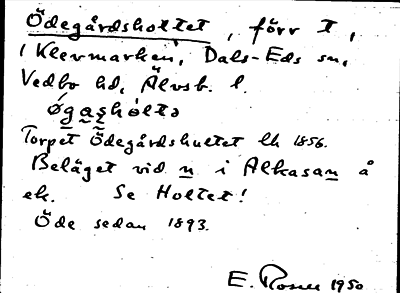 Ödegårdsholtet, förr T,
i Klevmarken, Dals-Eds sn,
Vedbo hd, Älvsb. l.
øgasholtə
Torpet Ödegårdshultet lh 1856.
Beläget vid n i Alkasan å
ek. Se Holtet!
Öde sedan 1893.
E. Rosell 1950